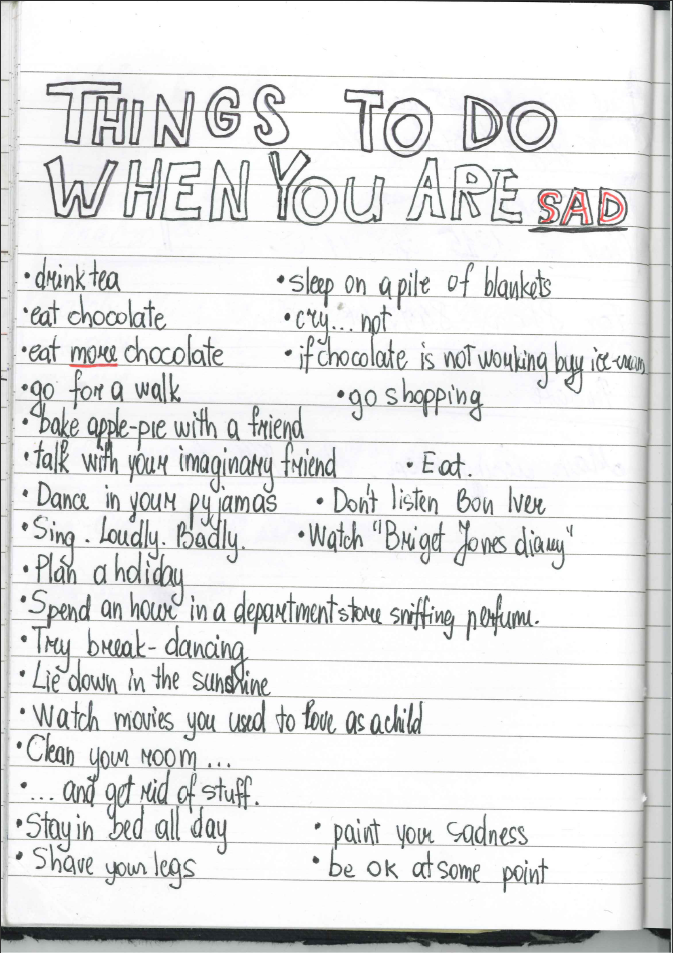 THINGS TO DO
WHEN YOU ARE SAD
• drink tea • sleep on a pile of blankets
• eat chocolate • cry... not
• eat more chocolate • if chocolate is not working buy ice-cream
• go for a walk • go shopping
• bake apple-pie with a friend
• talk with your imaginary friend • Eat.
• Dance in your pyjamas • Don't listen Bon Iver
• Sing. Loudly. Badly. • Watch "Briget Jones diary"
• Plan a holiday
• Spend an hour in a department store sniffing perfume.
• Try break-dancing
• Lie down in the sunshine
• Watch movies you used to love as a child
• Clean your room...
• ... and get rid of stuff.
• Stay in bed all day • paint your sadness
• Shave your legs • be ok at some point